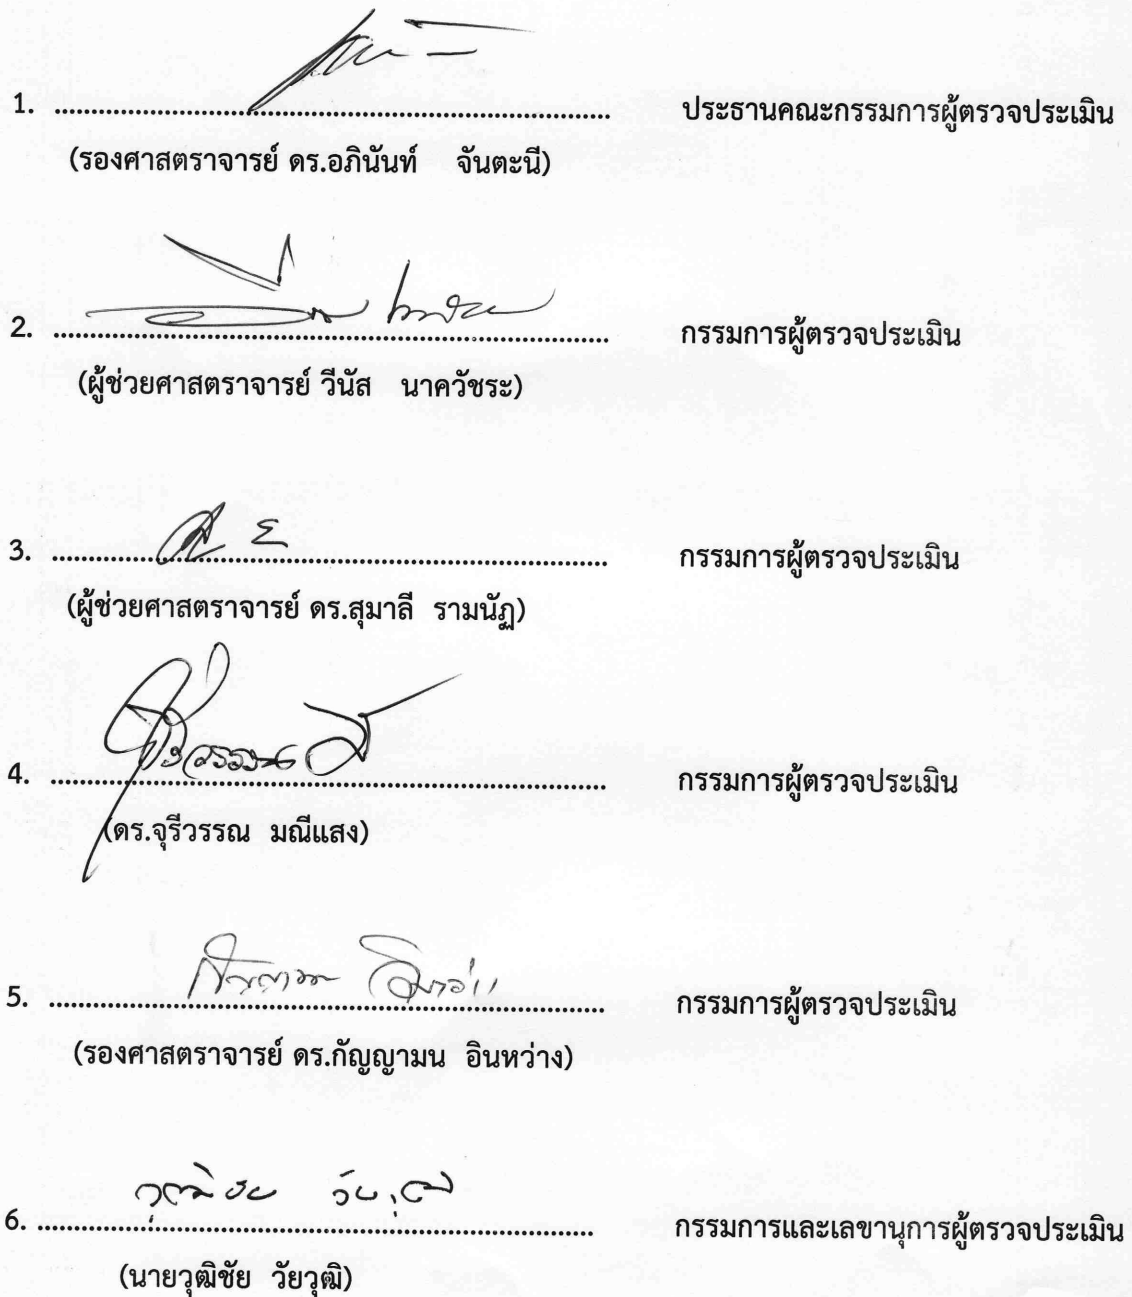 1. ........................................ ประธานคณะกรรมการผู้ตรวจประเมิน
(รองศาสตราจารย์ ดร.อภินันท์ จันตะนี)
2. ........................................ กรรมการผู้ตรวจประเมิน
(ผู้ช่วยศาสตราจารย์ วีนัส นาควัชระ)
3. ........................................ กรรมการผู้ตรวจประเมิน
(ผู้ช่วยศาสตราจารย์ ดร.สุมาลี รามนัฏ)
4. ........................................ กรรมการผู้ตรวจประเมิน
(ดร.จุรีวรรณ มณีแสง)
5. ........................................ กรรมการผู้ตรวจประเมิน
(รองศาสตราจารย์ ดร.กัญญามน อินหว่าง)
วุฒิชัย วัยวุฒิ
6. ........................................ กรรมการและเลขานุการผู้ตรวจประเมิน
(นายวุฒิชัย วัยวุฒิ)